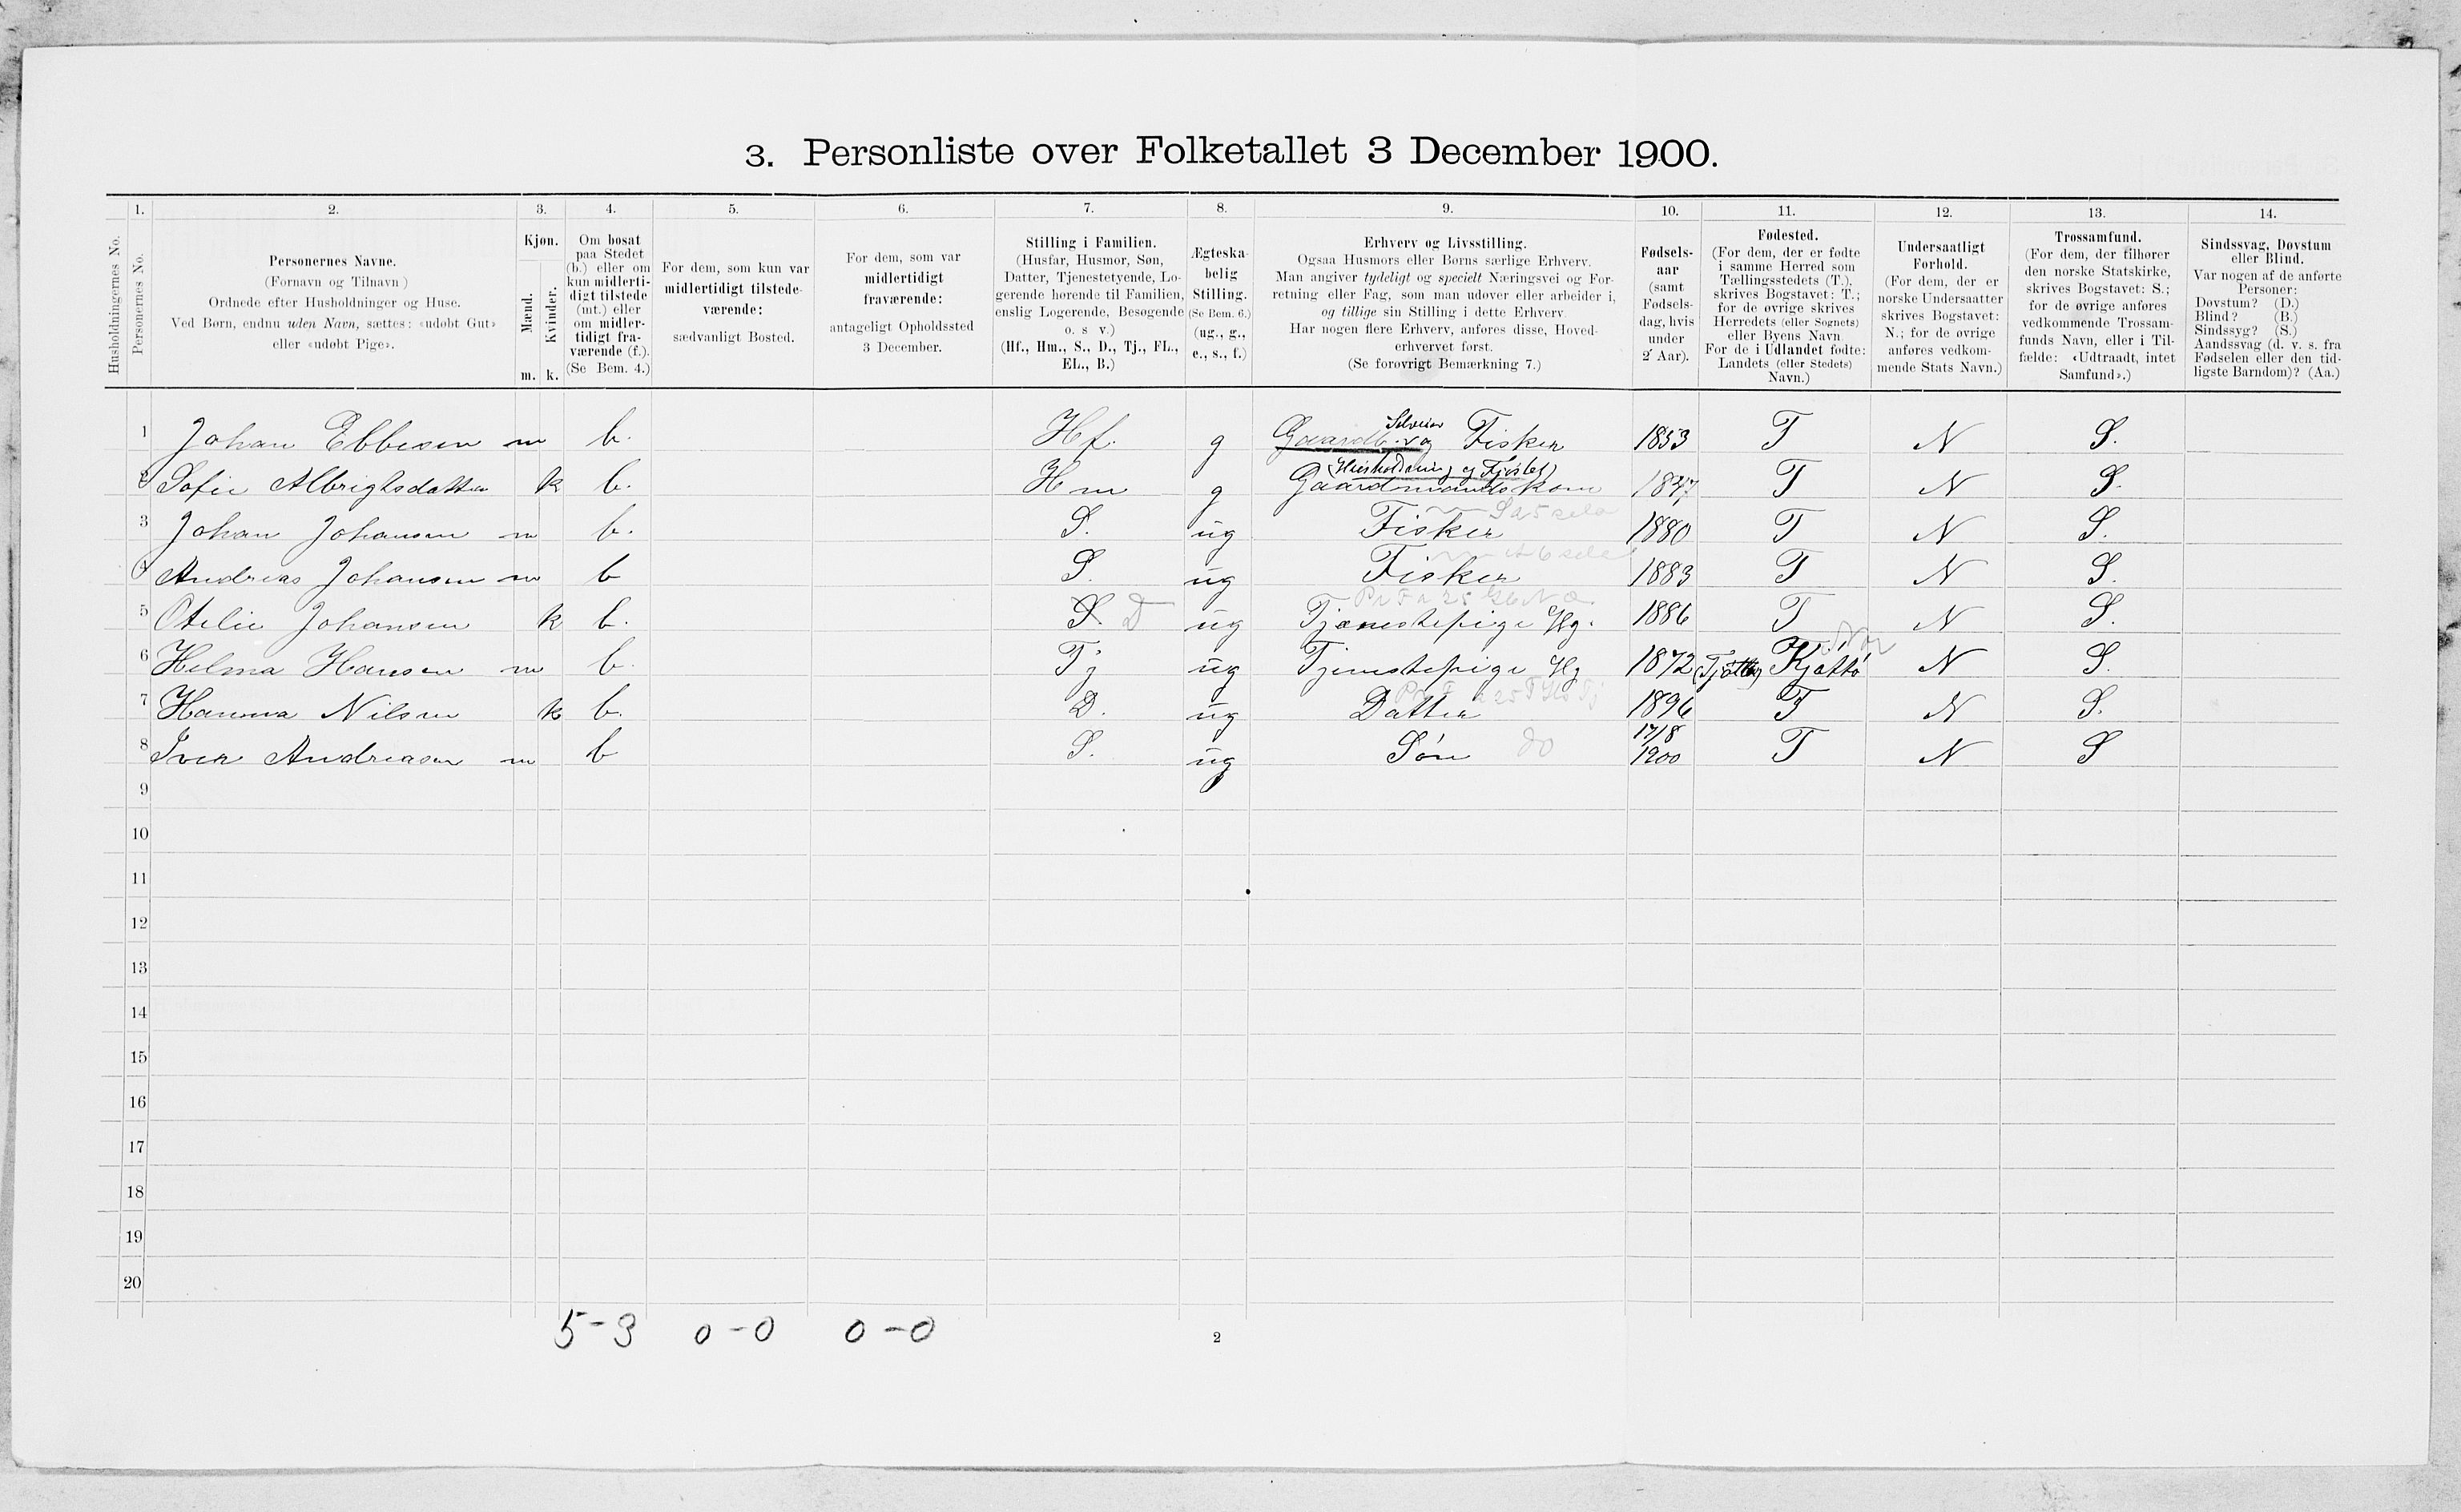 3. Personliste over Folketallet 3 December 1900.
1. 2. 3. 4. 5. 6. 7. 8. 9. 10. 11. 12. 13. 14.
Husholdningernes No.
Personernes No.
Personernes Navne.
(Fornavn og Tilnavn)
Ordnede efter Husholdninger og Huse.
Ved Børn, endnu uden Navn, sættes: «udøbt Gut»
eller «udøbt Pige».
Kjøn.
Mænd.
Kvinder.
m. k.
Om bosat
paa Stedet
(b.) eller om
kun midlerti-
digt tilstede
(mt.) eller
om midler-
tidigt fra-
værende (f.).
(Se Bem. 4.)
For dem, som kun var
midlertidigt tilstede-
værende:
sædvanligt Bosted.
For dem, som var
midlertidigt
fraværende:
antageligt Opholdssted
3 December.
Stilling i Familien.
(Husfar, Husmor, Søn,
Datter, Tjenestetyende, Lo-
gerende hørende til Familien,
enslig Logerende, Besøgende
o. s v.)
(Hf., Hm., S., D., Tj., FL.,
EL., B.)
Ægteska-
belig
Stilling.
(Se Bem. 6.)
(ug., g.,
e., s., f.)
Erhverv og Livsstilling.
Ogsaa Husmors eller Børns særlige Erhverv.
Man angiver tydeligt og specielt Næringsvei og For-
retning eller Fag, som man udøver eller arbeider i,
og tillige sin Stilling i dette Erhverv.
Har nogen flere Erhverv, anføres disse, Hoved-
erhvervet først.
(Se forøvrigt Bemærkning 7.)
Fødsels-
aar
(samt
Fødsels-
dag, hvis
under
2 Aar).
Fødested.
(For dem, der er fødte
i samme Herred som
Tællingsstedets (T.),
skrives Bogstavet: T.;
for de øvrige skrives
Herredets (eller Sognets)
eller Byens Navn
For de i Udlandet fødte:
Landets (eller Stedets)
Navn.)
Undersaatligt
Forhold.
(For dem, der er
norske Undersaatter
skrives Bogstavet:
N.; for de øvrige
anføres vedkom-
mende Stats Navn.)
Trossamfund.
(For dem, der tilhører
den norske Statskirke,
skrives Bogstavet: S.;
for de øvrige anføres
vedkommende Trossam-
funds Navn, eller i Til-
fælde: «Udtraadt, intet
Samfund».)
Sindssvag, Døvstum
eller Blind.
Var nogen af de anførte
Personer:
Døvstum? (D.)
Blind? (B.)
Sindssyg? (S.)
Aandssvag (d. v. s. fra
Fødselen eller den tid-
ligste Barndom)? (Aa.)
Selveier
1 Johan Ebbesen m b. Hf. g Gaardb. og Fisker 1853 T N S.
(Husholdning og Fjøstel)
2 Sofie Albrigtsdatter k b. Hm g Gaardmandskone 1847 T N S.
3 Johan Johansen m b. S. ug Fisker 1880 T N S.
4 Andreas Johansen m b S. ug Fisker 1883 T N S.
5 Otelie Johansen k b. S. D ug Tjenestepige Hg. 1886 T N S.
6 Helma Hansen m b. Tj ug Tjenestepige Hg 1872 (Tjøttø) Kjøttø N S.
7 Hanna Nilsen k b. D. ug Datter 1896 T N S.
8 Iver Andreasen m b S. ug Søn do 17/8 1900 T N S
9
10
11
12
13
14
15
16
17
18
19
20
5-3 0-0 0-0
2